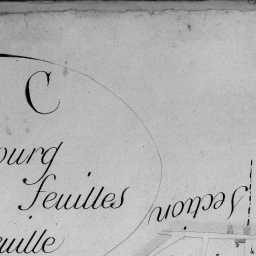 C
ourg
feuilles
euille
Section